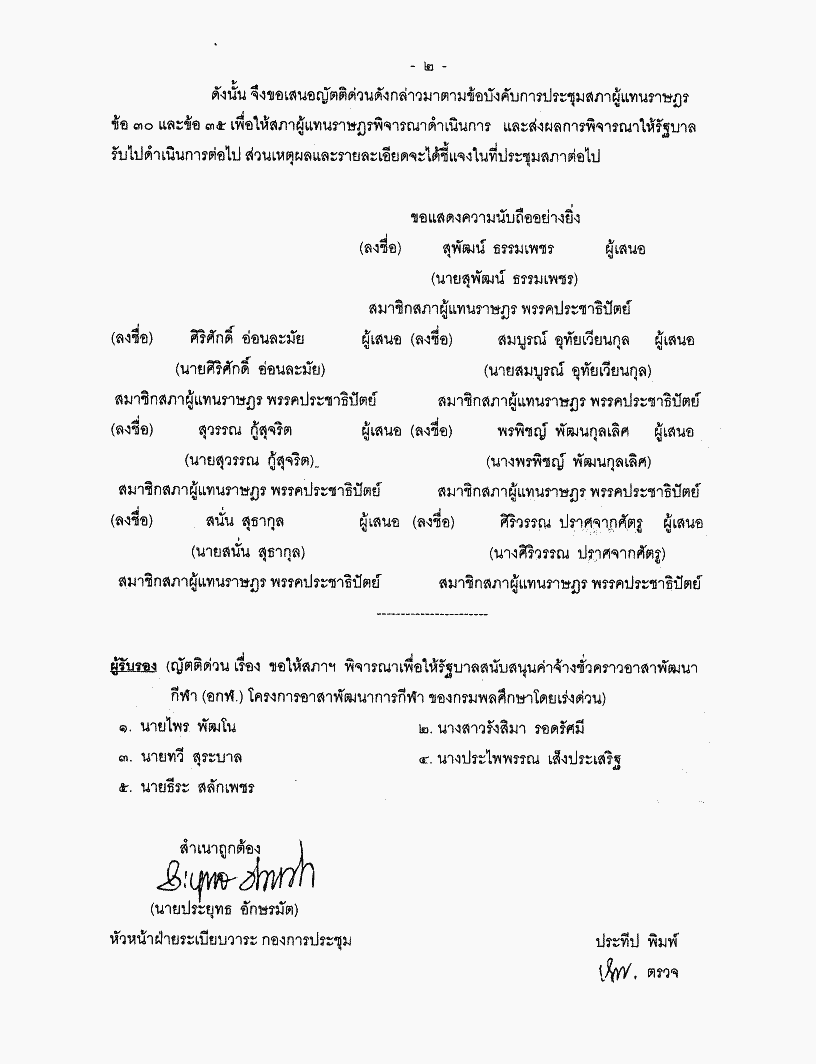 - ๒ -
ดังนั้น จึงขอเสนอญัตติด่วนดังกล่าวมาตามข้อบังคับการประชุมสภาผู้แทนราษฎร
ข้อ ๓๐ และข้อ ๓๕ เพื่อให้สภาผู้แทนราษฎรพิจารณาดำเนินการ และส่งผลการพิจารณาให้รัฐบาล
รับไปดำเนินการต่อไป ส่วนเหตุผลและรายละเอียดจะได้ชี้แจงในที่ประชุมสภาต่อไป
ขอแสดงความนับถืออย่างยิ่ง
(ลงชื่อ) สุพัฒน์ ธรรมเพชร ผู้เสนอ
(นายสุพัฒน์ ธรรมเพชร)
สมาชิกสภาผู้แทนราษฎร พรรคประชาธิปัตย์
(ลงชื่อ) ศิริศักดิ์ อ่อนละมัย ผู้เสนอ (ลงชื่อ) สมบูรณ์ อุทัยเวียนกุล ผู้เสนอ
(นายศิริศักดิ์ อ่อนละมัย) (นายสมบูรณ์ อุทัยเวียนกุล)
สมาชิกสภาผู้แทนราษฎร พรรคประชาธิปัตย์ สมาชิกสภาผู้แทนราษฎร พรรคประชาธิปัตย์
(ลงชื่อ) สุวรรณ กู้สุจริต ผู้เสนอ (ลงชื่อ) พรพิชญ์ พัฒนกุลเลิศ ผู้เสนอ
(นายสุวรรณ กู้สุจริต) (นางพรพิชญ์ พัฒนกุลเลิศ)
สมาชิกสภาผู้แทนราษฎร พรรคประชาธิปัตย์ สมาชิกสภาผู้แทนราษฎร พรรคประชาธิปัตย์
(ลงชื่อ) สนั่น สุธากุล ผู้เสนอ (ลงชื่อ) ศิริวรรณ ปราศจากศัตรู ผู้เสนอ
(นายสนั่น สุธากุล) (นางศิริวรรณ ปราศจากศัตรู)
สมาชิกสภาผู้แทนราษฎร พรรคประชาธิปัตย์ สมาชิกสภาผู้แทนราษฎร พรรคประชาธิปัตย์
-----------------------
ผู้รับรอง (ญัตติด่วน เรื่อง ขอให้สภาฯ พิจารณาเพื่อให้รัฐบาลสนับสนุนค่าจ้างชั่วคราวอาสาพัฒนา
กีฬา (อกฬ.) โครงการอาสาพัฒนาการกีฬา ของกรมพลศึกษาโดยเร่งด่วน)
๑. นายไพร พัฒโน ๒. นางสาวรังสิมา รอดรัศมี
๓. นายทวี สุระบาล ๔. นางประไพพรรณ เส็งประเสริฐ
๕. นายธีระ สลักเพชร
สำเนาถูกต้อง
(นายประยุทธ อักษรมัต)
หัวหน้าฝ่ายระเบียบวาระ กองการประชุม ประทีป พิมพ์
ตรวจ